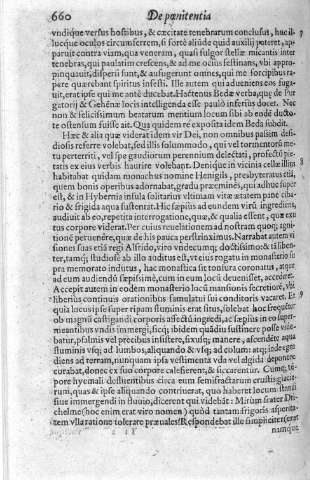 660 De pœnitentia
vndique versus hostibus, & cæcitate tenebrarum conclusus, huc il-
lucque oculos circumferrem, si fortè aliúde quid auxilij poteret, ap-
paruit contra viam, qua veneram, quasi fulgor stellæ micantis inter
tenebras, qui paulatim crescens, & ad me ocius festinans, vbi appro-
pinquauit, dispersi sunt, & aufugerunt omnes, qui me forcipibus ra-
pere quærebant spiritus infesti. Ille autem qui adueniens eos fuga-
uit, erat ipse qui me antè ducebat. Hactenus Bedæ verba, quę de Pur
gatorij & Gehénæ locis intelligenda esse paulò inferiùs docet. Nec
non & felicissimum beatorum mentium locum sibi ab eodē ducto-
te ostensum fuisse ait. Qua quidem re exposita idem Beda subdit.
Hæc & alia quæ viderat idem vir Dei, non omnibus passim desi-
diosis referre volebat, sed illis solummodo, qui vel tormentorū me-
tu perterriti, vel spe gaudiorum perennium delectati, profectū pie-
tatis ex eius verbis haurire volebant. Denique in vicinia cellæ illius
habitabat quidam monachus nomine Henigils, presbyteratus etiā,
quem bonis operibus adornabat, gradu præeminēs, qui adhuc super
est, & in Hybernia insula solitarius vltimam vitæ ætatem pane ciba-
rio & frigida aqua sustentat. Hic sæpiùs ad eundem virū ingrediens,
audiuit ab eo, repetita interrogatione, quæ, & qualia essent, quæ exu
tus corpore viderat. Per cuius reuelationem ad nostram quoq; agni-
tionē peruenêre, quæ de his pauca perstrinximus. Narrabat autem vi
siones suas etiā regi Alfrido, viro vndecumq; doctissimo: & tā liben-
ter, tamq; studiosè ab illo auditus est, vt eius rogatu in monasterio su
pra memorato indutus, hac monastica sit tonsura coronatus, atque
ad eum audiendū sæpissimè, cum in eum locū deuenisset, accederet.
Accepit autem in eodem monasterio locū mansionis secretiorē, vbi
liberiùs continuis orationibus famulatui sui conditoris vacaret. Et
quia locus ipse super ripam fluminis erat situs, solebat hoc frequēter
ob magnū castigandi corporis affectū ingredi, ac sępiùs in eo super-
meantibus vndis immergi, sicq; ibidem quādiu sustinere posse vide-
batur, psalmis vel precibus insistere, fixusq; manere, ascendēte aqua
fluminis vsq; ad lumbos, aliquando & vsq; ad collum: atq; inde egre
diens ad terram, nunquam ipsa vestimenta vda vel algida deponere
curabat, donec ex suo corpore calefierent, & siccarentur. Cumq; tē-
pore hyemali defluentibus circa eum semifractarum crustis glacie-
rum, quas & ipse aliquando contriuerat, quo haberet locum standi
siue immergendi in fluuio, dicerent qui videbāt: Mirùm frater Dri-
chelme (hoc enim erat viro nomen) quòd tantam frigoris asperita-
tem vlla ratione tolerare præuales! Respondebat ille simpliciter (erat
namque